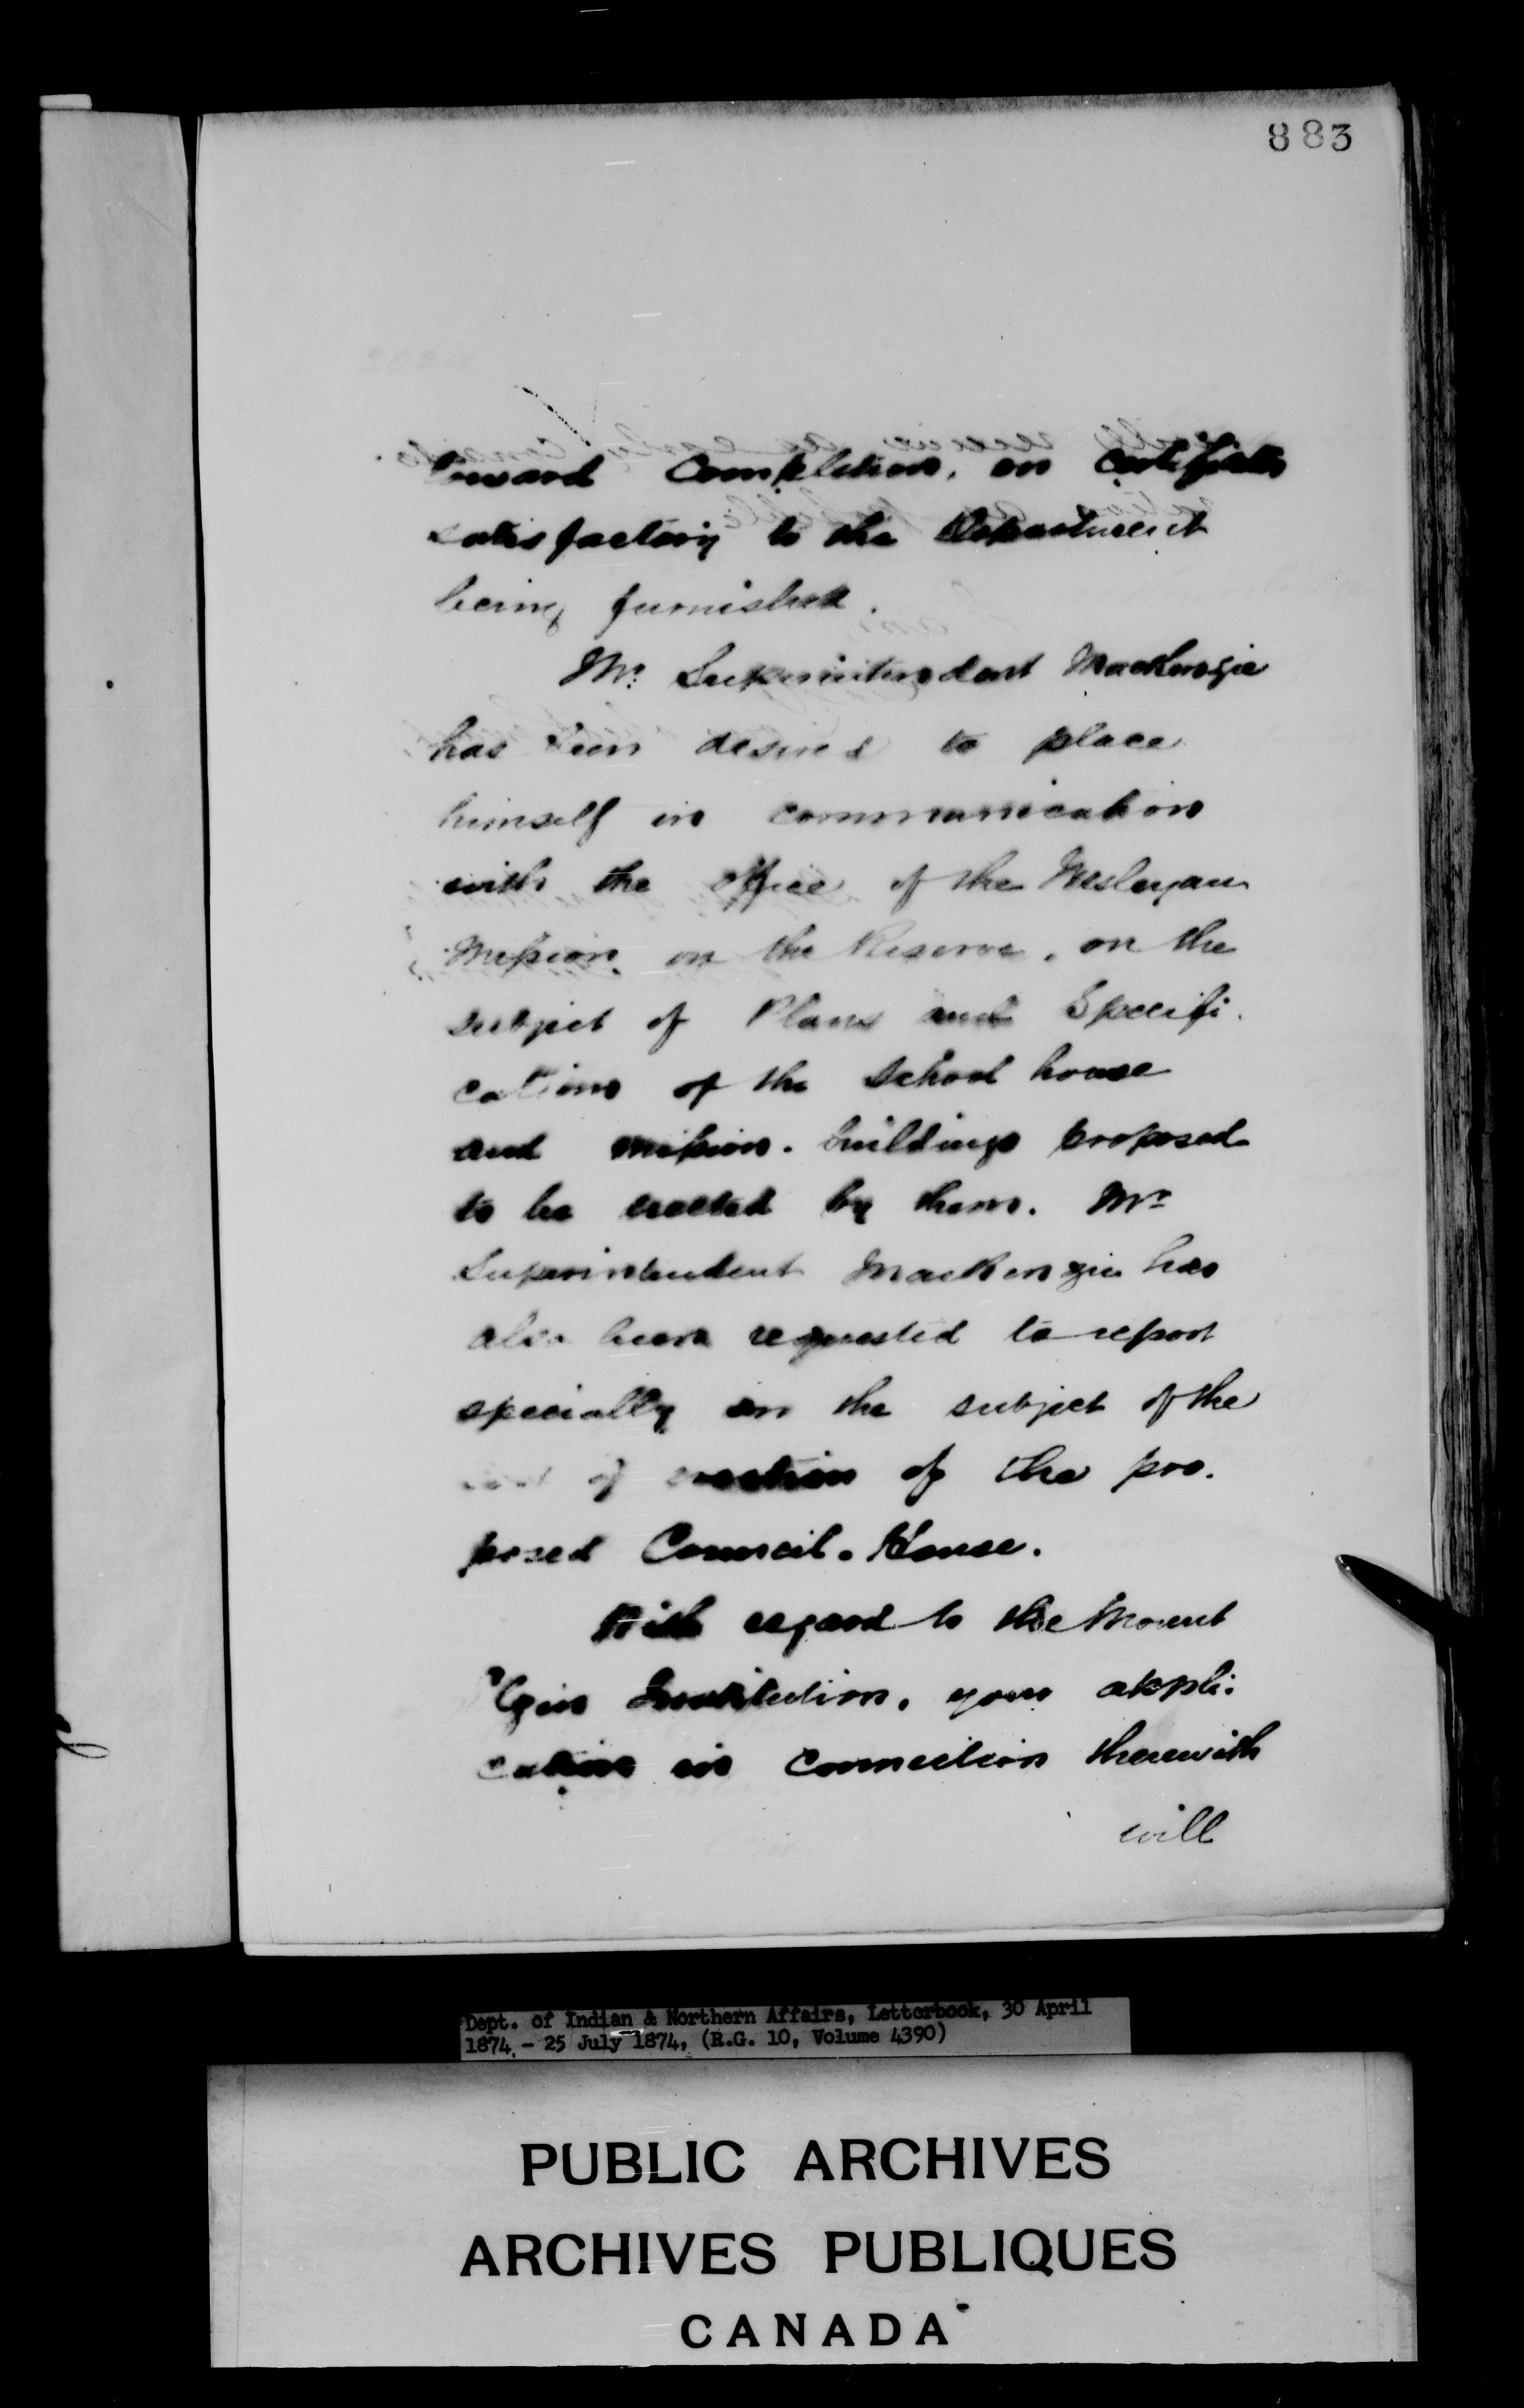 883
toward Completion, on certificates
satisfactory to the Department
being furnished.
Mr. Superintendent Mackenzie
has been desired to place
himself in communication
with the office of the Wesleyan
Mission on the Reserve, on the
subject of Plans and Specifi-
cations of the School house
and mission-buildings proposed
to be erected by them. Mr
Superintendent Mackenzie has
also been requested to report
specially on the subject of the
cost of erection of the pro-
posed Council-House.
With regard to the Mount
Elgin Institution, your appli-
cation in connection therewith
will
Dept. of Indian & Northern Affairs, Letterbook, 30 April
1874 - 25 July 1874, (R.G. 10, Volume 4390)
PUBLIC ARCHIVES
ARCHIVES PUBLIQUES
CANADA